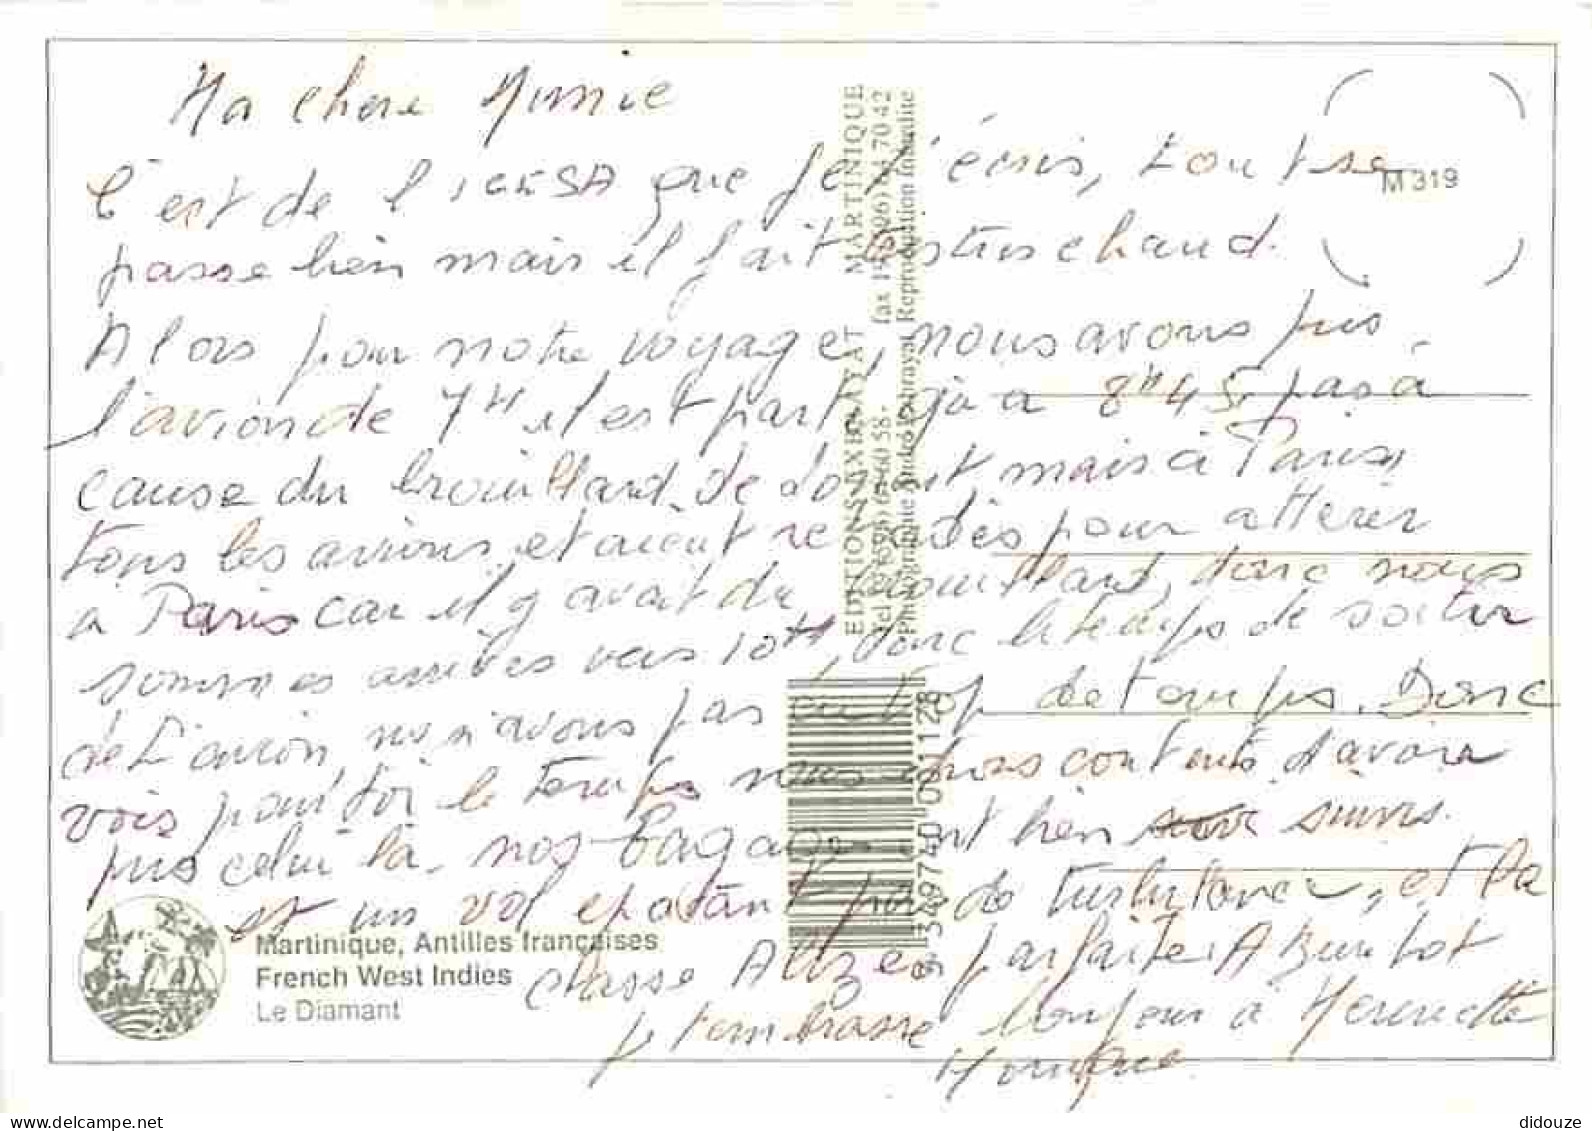 Ma chère Mimie
C'est de l'IGESA que je t'écris, tout se
passe bien mais il fait très très chaud.
Alors pour notre voyage, nous avons pris
l'avion de 7H il est parti qu'à 8H45 pas à
cause du brouillard de mais à Paris,
tous les avions etaient retardés pour atterir
a Paris car il y avait du brouillard, donc nous
sommes arrivés vers 10H, donc le temps de sortir
de l'avion, ns n'avons pas eu trop de temps. Donc
vois pour toi le temps nous étions contents d'avoir
pris celui là. nos bagages ont bien suivis.
et un vol epatant pas de turbulence, et la
classe Alizes parfaite. A Bientot
je t'embrasse bonjour à Henriette
Monique
M 319
EDITIONS EXBRAYAT MARTINIQUE
Photographie André Exbrayat Reproduction interdite
3 349740 011128
Martinique, Antilles françaises
French West Indies
Le Diamant
delcampe.net
didouze